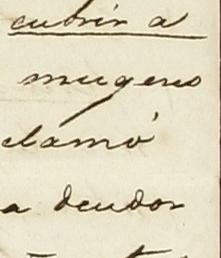 cubrir a
mugeres
clamó
a deudor